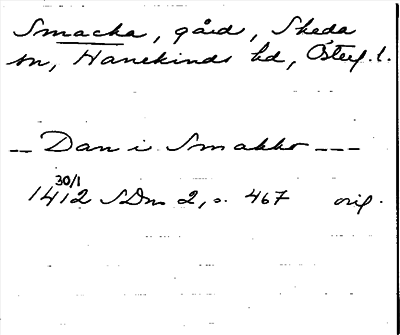 Smacka, gård, Skeda
sn, Hanekinds hd, Österg. l.
-- Dan i Smakko ---
30/1
1412 SDns 2, s. 467 orig.